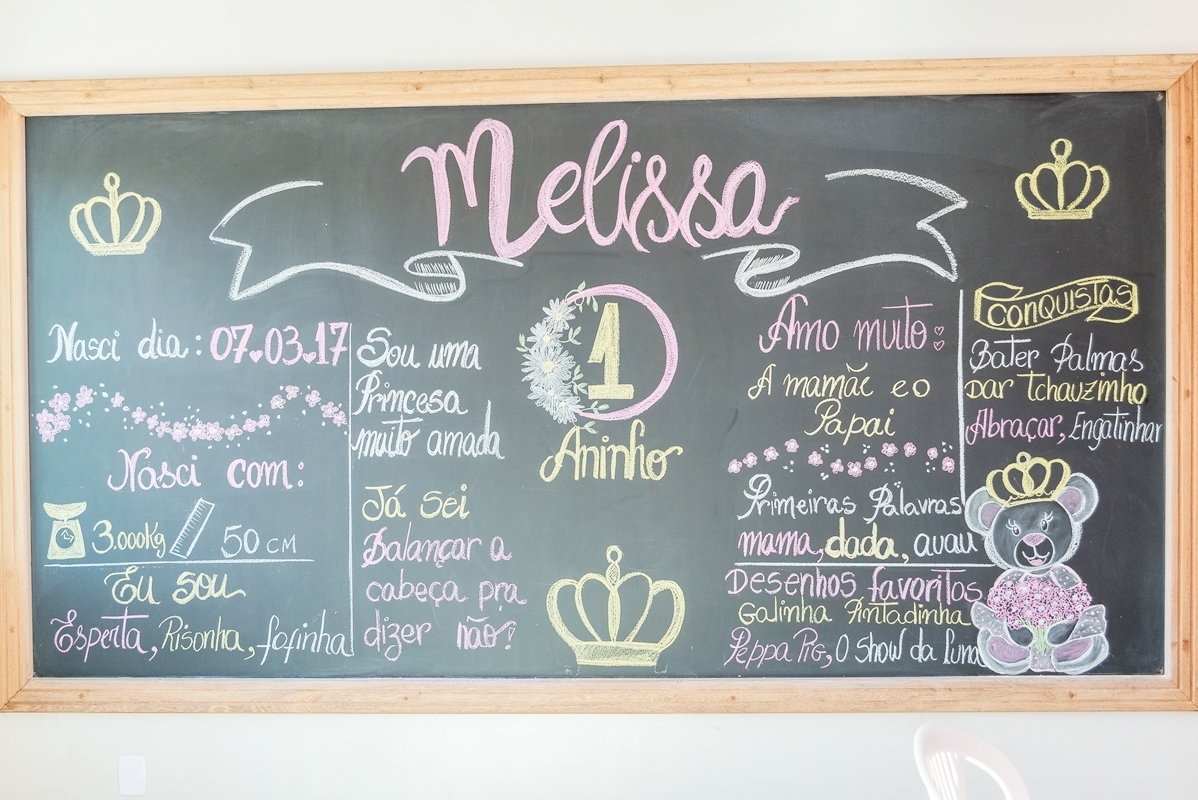 Melissa
Nasci dia: 07.03.17
Nasci com:
3.000Kg 50 CM
Eu sou
Esperta, Risonha, fofinha
Sou uma
Princesa
muito amada
Já sei
Balançar a
cabeça pra
dizer não!
1
Aninho
Amo muito:
A mamãe e o
Papai
Primeiras Palavras
mama, dada, auau
Desenhos favoritos
Galinha Pintadinha
Peppa Pig, O Show da luna
Conquistas
Bater Palmas
Dar Tchauzinho
Abraçar, Engatinhar